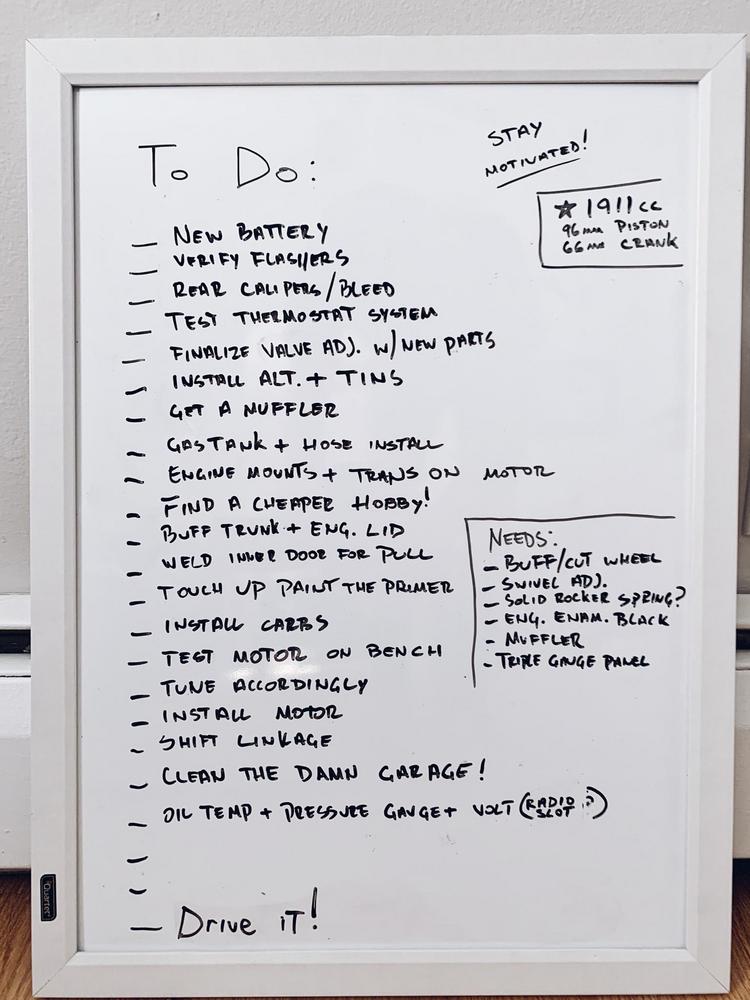 To Do:
STAY
MOTIVATED!
★ 1911cc
96mm PISTON
66mm CRANK
— NEW BATTERY
— VERIFY FLASHERS
— REAR CALIPERS/BLEED
— TEST THERMOSTAT SYSTEM
— FINALIZE VALVE ADJ. W/ NEW PARTS
— INSTALL ALT. + TINS
— GET A MUFFLER
— GAS TANK + HOSE INSTALL
— ENGINE MOUNTS + TRANS ON MOTOR
— FIND A CHEAPER HOBBY!
— BUFF TRUNK + ENG. LID
— WELD INNER DOOR FOR PULL
— TOUCH UP PAINT THE PRIMER
— INSTALL CARBS
— TEST MOTOR ON BENCH
— TUNE ACCORDINGLY
— INSTALL MOTOR
— SHIFT LINKAGE
— CLEAN THE DAMN GARAGE!
— OIL TEMP + PRESSURE GAUGE + VOLT (RADIO SLOT ?)
—
—
— Drive iT!
NEEDS:
— BUFF/CUT WHEEL
— SWIVEL ADJ.
— SOLID ROCKER SPRING?
— ENG. ENAM. BLACK
— MUFFLER
— TRIPLE GAUGE PANEL
Quartet